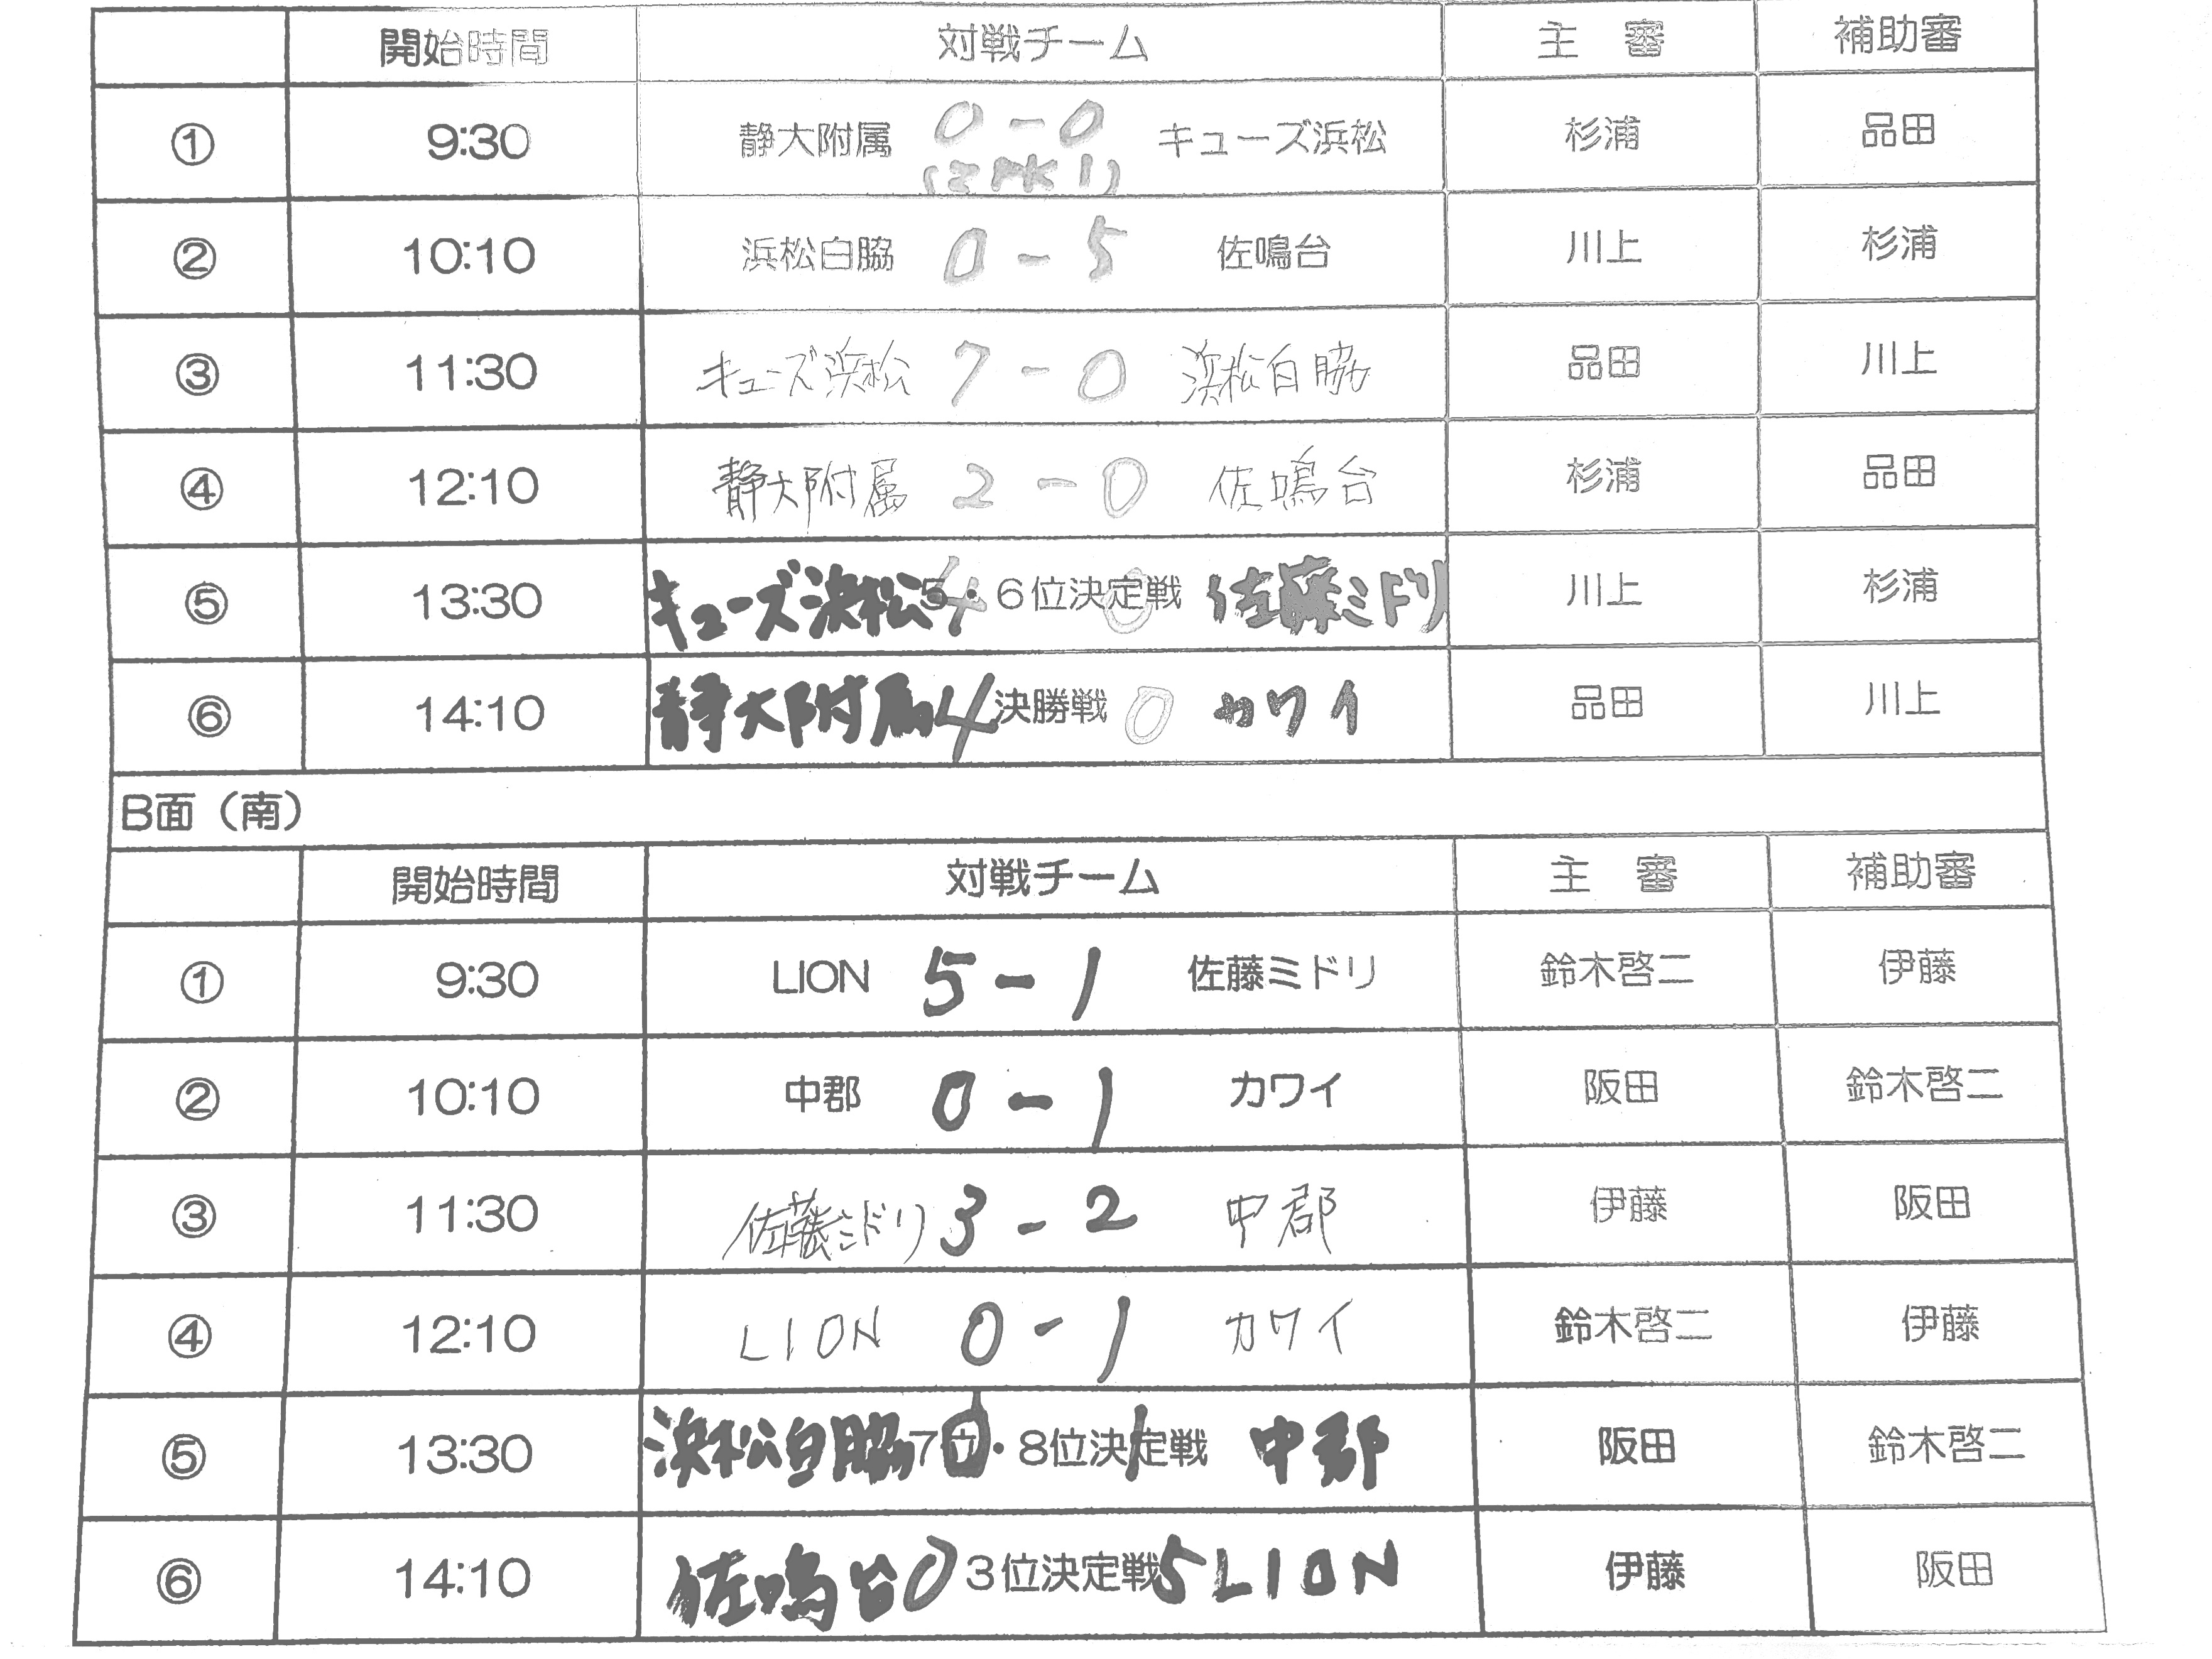 開始時間 対戦チーム 主 審 補助審
① 9:30 静大附属 0-0 キューズ浜松 杉浦 品田
(2 PK 1)
② 10:10 浜松白脇 0-5 佐鳴台 川上 杉浦
③ 11:30 キューズ浜松 7-0 浜松白脇 品田 川上
④ 12:10 静大附属 2-0 佐鳴台 杉浦 品田
⑤ 13:30 キューズ浜松 4 5・6位決定戦 0 佐藤ミドリ 川上 杉浦
⑥ 14:10 静大附属 4 決勝戦 0 カワイ 品田 川上
B面(南)
開始時間 対戦チーム 主 審 補助審
① 9:30 LION 5-1 佐藤ミドリ 鈴木啓二 伊藤
② 10:10 中郡 0-1 カワイ 阪田 鈴木啓二
③ 11:30 佐藤ミドリ 3-2 中郡 伊藤 阪田
④ 12:10 LION 0-1 カワイ 鈴木啓二 伊藤
⑤ 13:30 浜松白脇 7位・8位決定戦 1 中郡 阪田 鈴木啓二
⑥ 14:10 佐鳴台 0 3位決定戦 5 LION 伊藤 阪田